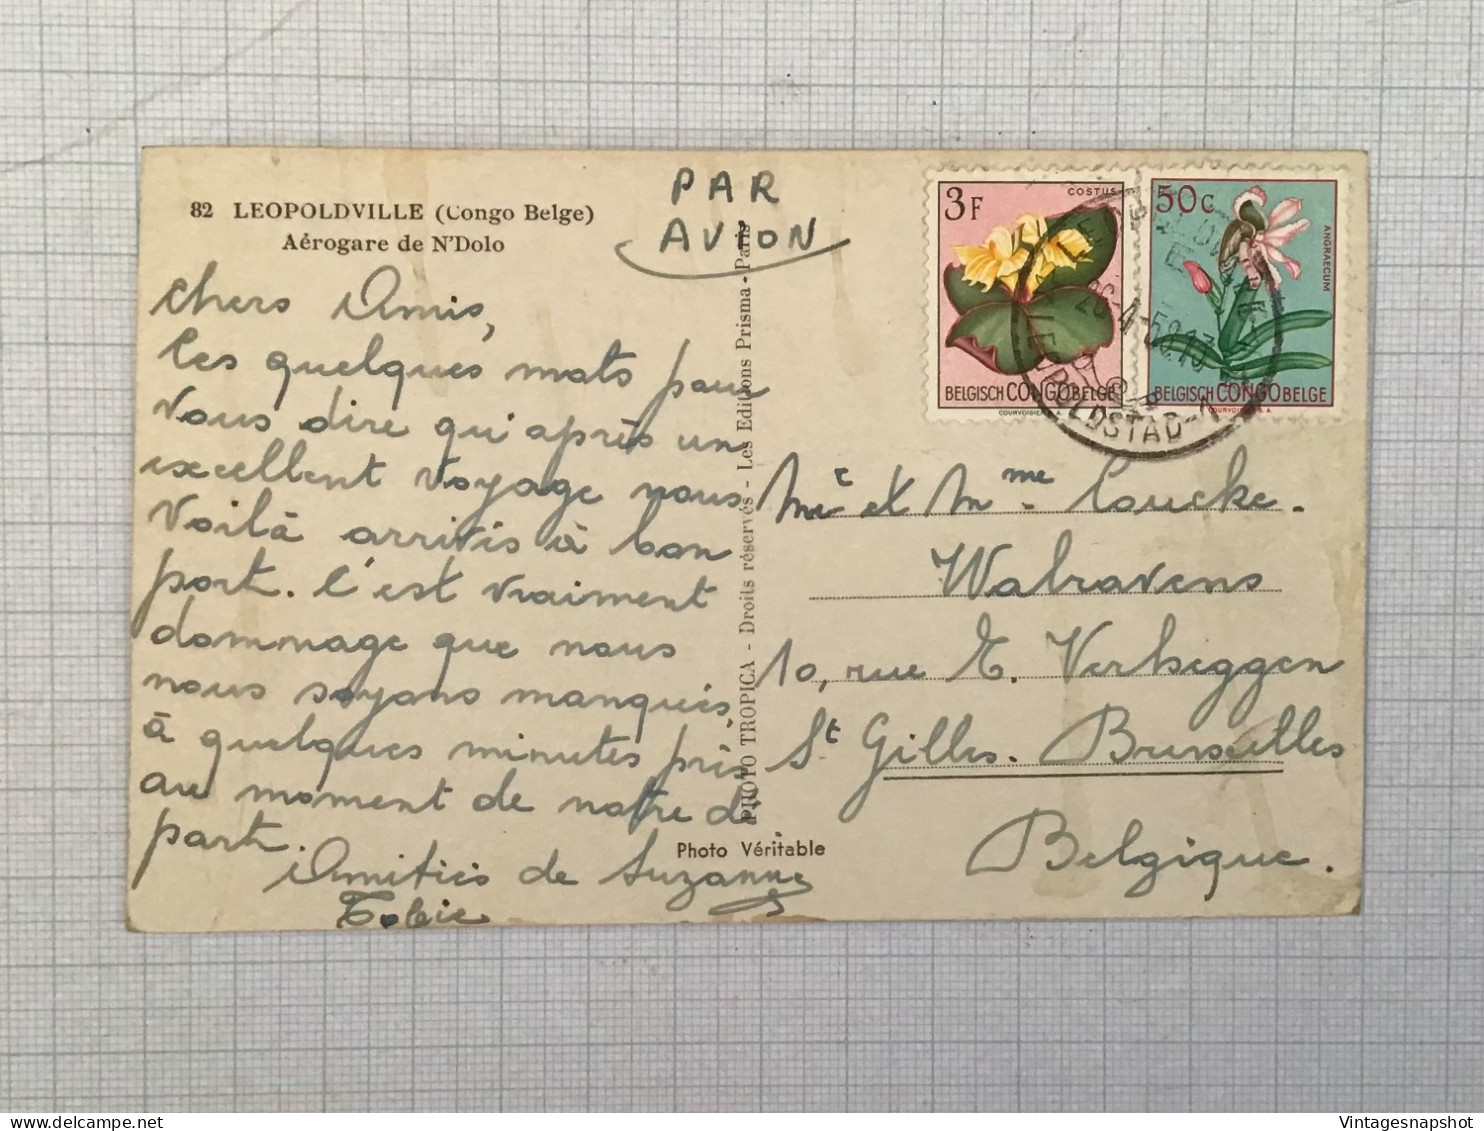 82 LEOPOLDVILLE (Congo Belge)
Aérogare de N'Dolo
PAR
AVION
Chers Amis,
Ces quelques mots pour
vous dire qu'après un
excellent voyage nous
voilà arrivés à bon
port. C'est vraiment
dommage que nous
nous soyons manqués,
à quelques minutes près
au moment de notre dé-
part.
Amitiés de Suzanne
PHOTO TROPICA - Droits réservés - Les Editions Prisma - Paris
Photo Véritable
3F
COSTUS
BELGISCH CONGO BELGE
50c
ANGRAECUM
BELGISCH CONGO BELGE
COURVOISIER S. A.
LEOPOLDSTAD-1
Mr et Mme Coucke.
Walravens
10, rue T. Verheggen
St Gilles. Bruxelles
Belgique.
Vintagesnapshot